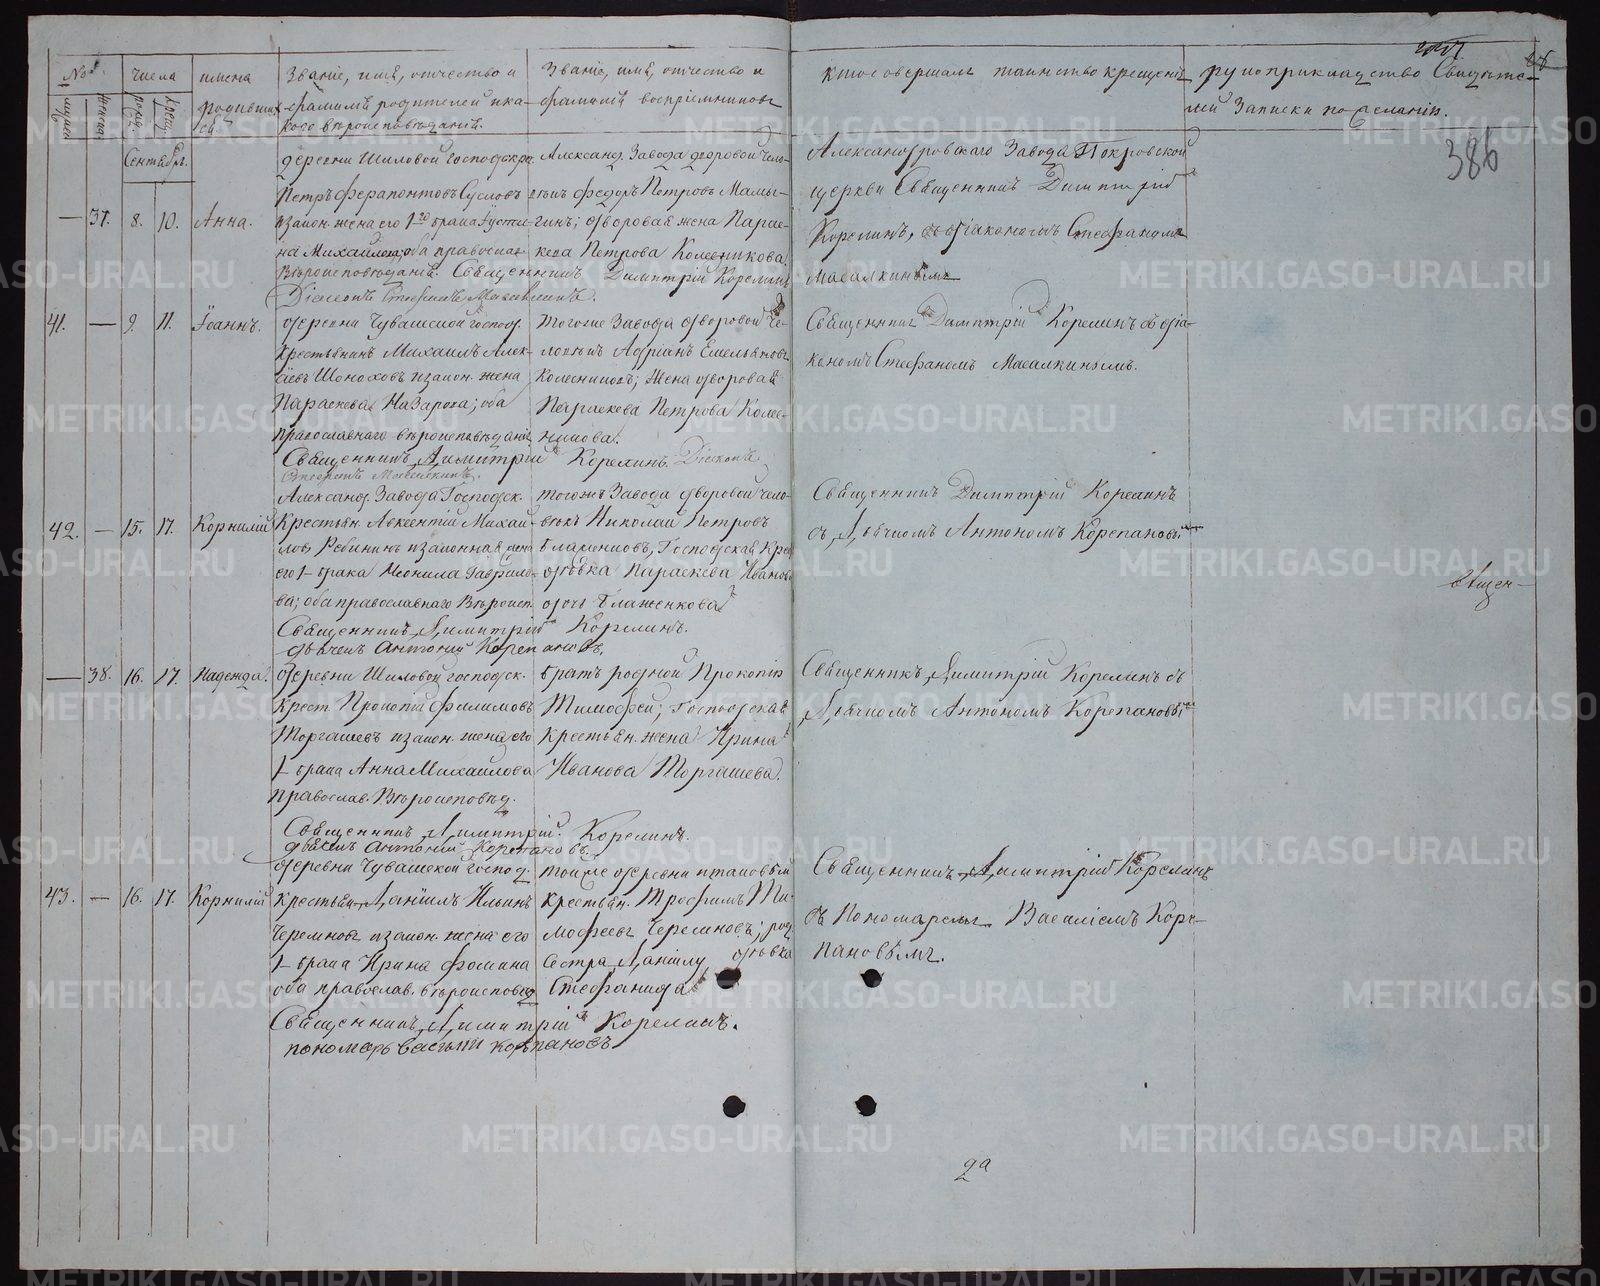 №
числа
имена
Званіе, имя, отчество и
Званіе, имя, отчество и
кто совершалъ таинство крещенія
рукоприкладство Свидѣте-
386
родивших
ся.
фамилія родителей и ка-
кого вѣроисповѣданія.
фамилія воспріемниковъ
лей Записки по желанію.
Сентябрь.
— 37. 8. 10. Анна.
деревни Шиловой господск.
Петръ Ферапонтовъ Сусловъ
и закон. жена его 1го брака
на Михайлова, оба православ
Вѣроисповѣданія. Священникъ Димитрій Корелинъ
Александ. Завода дворовой чело-
вѣкъ Федоръ Петровъ Мамы-
гинъ; дворовая жена Парас-
кева Петрова Колесникова
Александровскаго Завода Покровской
церкви Священникъ Димитрій
Корелинъ, съ діакономъ Стефаномъ
Масалкинымъ
41. — 9. 11. Іоаннъ.
деревни Чувашской господ.
крестьянинъ Михаилъ Алек-
ѣевъ Шоноховъ и закон. жена
Параскева Назарова; оба
православнаго вѣроисповѣданія
Священникъ Димитрій Корелинъ. Діаконъ
тогоже Завода дворовой че-
ловѣкъ Адріанъ Емельяновъ
Колесниковъ; жена дворовая
Параскева Петрова Колес-
никова.
Священникъ Димитрій Корелинъ съ діа-
кономъ Стефаномъ Масалкинымъ.
42. — 15. 17. Корнилій
Александ. Завода Господск.
Крестьян. Авксентій Михай-
ловъ Рябининъ и законная жена
его 1 брака Неонила Гаврило-
ва; оба православнаго Вѣроисп
Священникъ Димитрій Корелинъ.
дьячекъ Антоній Корепановъ.
тогожъ Завода дворовой чело-
вѣкъ Николай Петровъ
Блаженковъ, Господская Крес
дѣвка Параскева Иванова
дочь Блаженкова
Священникъ Димитрій Корелинъ
съ Дьячкомъ Антономъ Корепановы
— 38. 16. 17. Надежда.
деревни Шиловой господск.
крест. Прокопій Филимоновъ
Торгашевъ и закон. жена его
1 брака Анна Михайлова
православ. Вѣроисповѣд.
Священникъ Димитрій Корелинъ.
дьячекъ Антоній Корепановъ
братъ родной Прокопію
Тимофей; Господская
Крестьян. жена Ирина
Иванова Торгашева.
Священникъ Димитрій Корелинъ съ
Дьячкомъ Антономъ Корепановы
43. — 16. 17. Корнилій
деревни Чувашской господ.
крестьян. Даніилъ Ильинъ
Черемновъ и закон. жена его
1 брака Ирина Фомина
оба православ. вѣроисповѣд
Священникъ Димитрій Корелинъ.
пономарь Василій Корѣпановъ
крестьян. Трофимъ Ти-
мофеевъ Черемновъ; род
сестра Даніилу дѣвка
Стефанида
Священникъ Димитрій Корелинъ
съ Пономаремъ Василіемъ Коре-
пановымъ.
METRIKI.GASO-URAL.RU